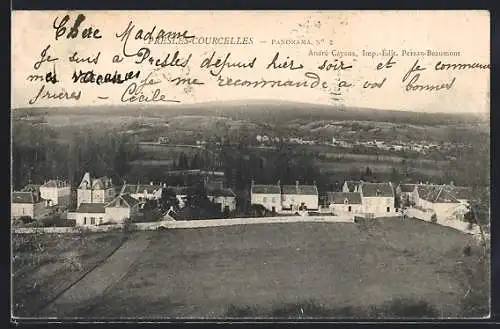 Chère Madame
PRESLES-COURCELLES — PANORAMA, N° 2
André Cayeux, Imp.-Édit. Persan-Beaumont
Je suis à Presles depuis hier soir et je commence
mes vacances
je me recommande à vos bonnes
prières Cécile